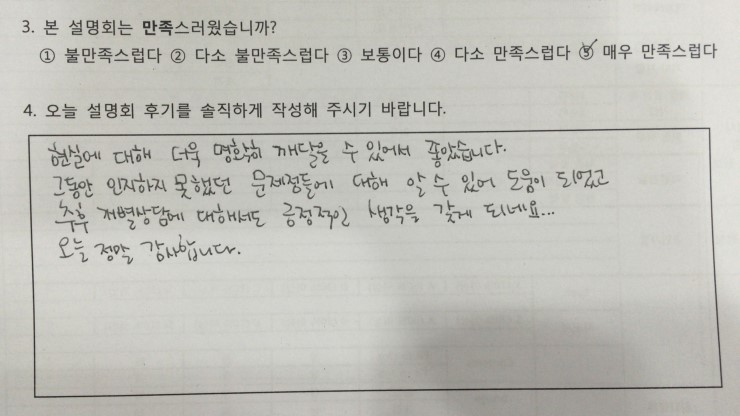 3. 본 설명회는 만족스러웠습니까?
① 불만족스럽다 ② 다소 불만족스럽다 ③ 보통이다 ④ 다소 만족스럽다 ⑤ 매우 만족스럽다
4. 오늘 설명회 후기를 솔직하게 작성해 주시기 바랍니다.
현실에 대해 더욱 명확히 깨달을 수 있어서 좋았습니다.
그동안 인지하지 못했던 문제점들에 대해 알 수 있어 도움이 되었고
추후 개별상담에 대해서도 긍정적인 생각을 갖게 되네요...
오늘 정말 감사합니다.